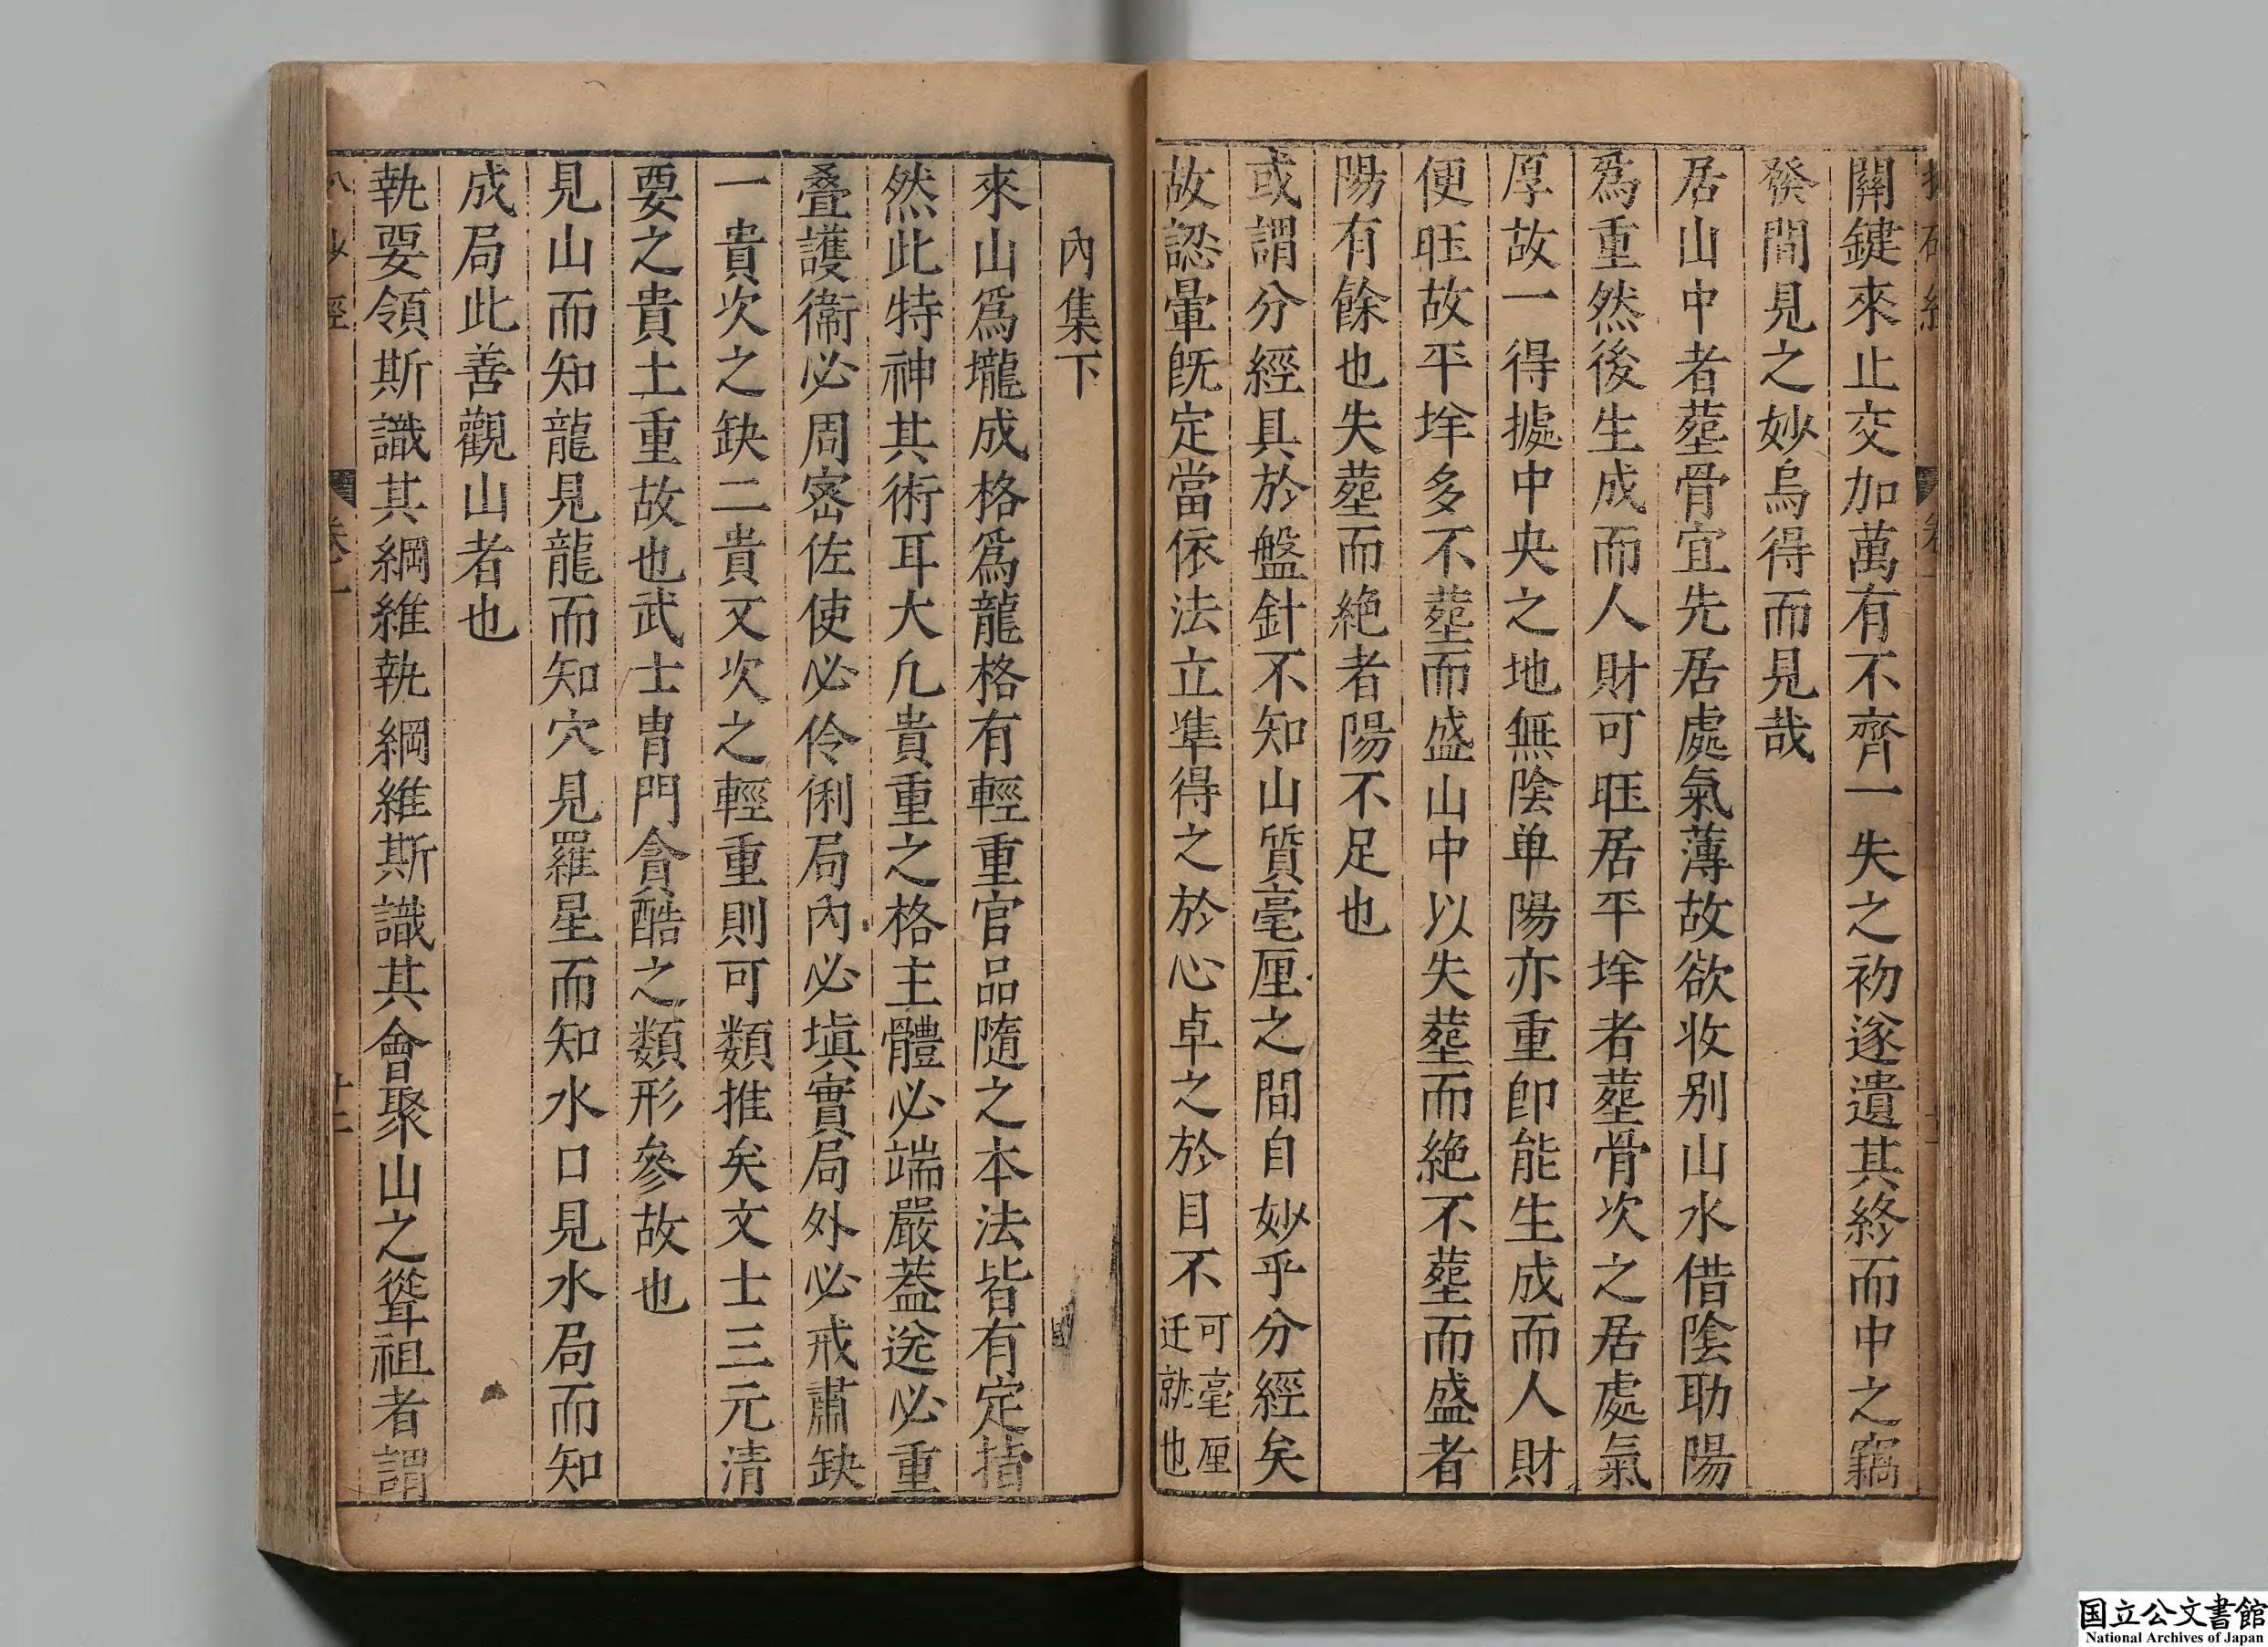 關鍵來止交加萬有不齊一失之初遂遺其終而中之竊
發間見之妙烏得而見哉
居山中者塟骨宜先居處氣薄故欲收别山水借陰助陽
爲重然後生成而人財可旺居平垟者塟骨次之居處氣
厚故一得據中央之地無陰单陽亦重即能生成而人財
便旺故平垟多不塟而盛山中以失塟而絶不塟而盛者
陽有餘也失塟而絶者陽不足也
或謂分經具於盤針不知山質毫厘之間自妙乎分經矣
故認暈旣定當依法立凖得之於心卓之於目不可毫厘迁就也
內集下
來山爲壠成格爲龍格有輕重官品隨之本法皆有定揩
然此特神其術耳大凢貴重之格主體必端嚴葢送必重
叠護衛必周宻佐使必伶俐局內必塡實局外必戒蕭缺
一貴次之缺二貴又次之輕重則可類推矣文士三元清
要之貴土重故也武士胄門貪酷之類形參故也
見山而知龍見龍而知穴見羅星而知水口見水局而知
成局此善觀山者也
執要領斯識其綱維執綱維斯識其會聚山之聳祖者謂
卷一
廿二
国立公文書館
National Archives of Japan